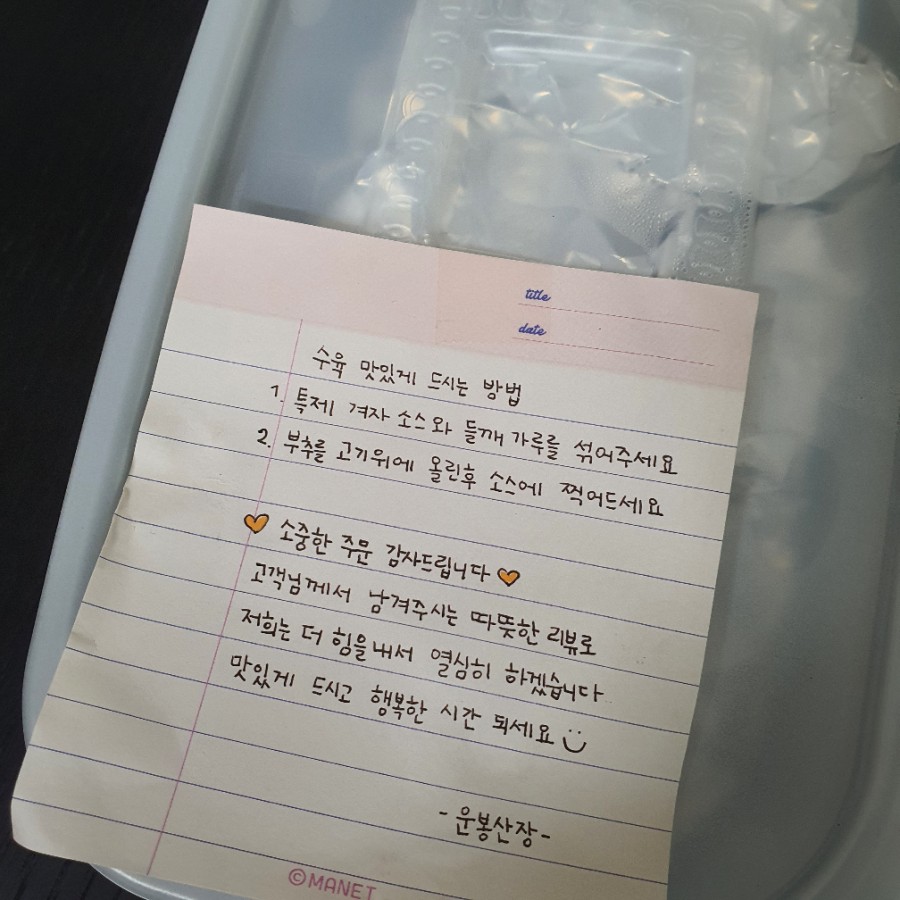 title
date
수육 맛있게 드시는 방법
1. 특제 겨자 소스와 들깨가루를 섞어주세요
2. 부추를 고기위에 올린후 소스에 찍어드세요
🧡 소중한 주문 감사드립니다 🧡
고객님께서 남겨주시는 따뜻한 리뷰로
저희는 더 힘을내서 열심히 하겠습니다
맛있게 드시고 행복한 시간 되세요
-운봉산장-
©MANET